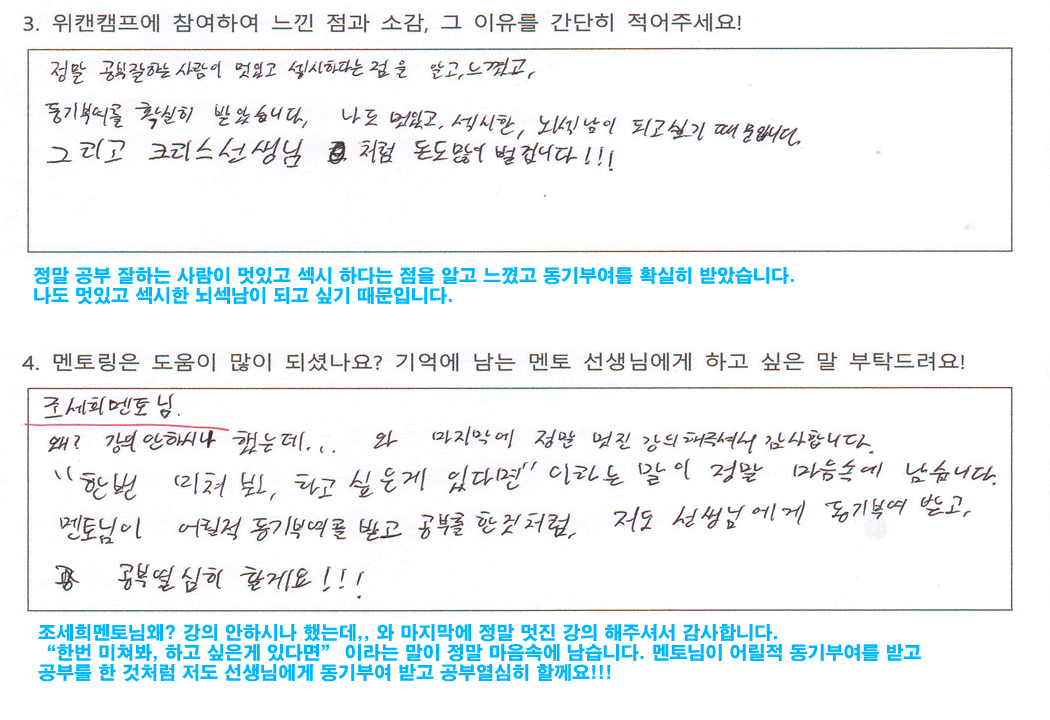 3. 위캔캠프에 참여하여 느낀 점과 소감, 그 이유를 간단히 적어주세요!
정말 공부잘하는 사람이 멋있고 섹시하다는 점을 알고, 느꼈고,
동기부여를 확실히 받았습니다, 나도 멋있고, 섹시한, 뇌섹남이 되고싶기 때문입니다.
그리고 크리스선생님 처럼 돈도많이 벌겁니다!!!
정말 공부 잘하는 사람이 멋있고 섹시 하다는 점을 알고 느꼈고 동기부여를 확실히 받았습니다.
나도 멋있고 섹시한 뇌섹남이 되고 싶기 때문입니다.
4. 멘토링은 도움이 많이 되셨나요? 기억에 남는 멘토 선생님에게 하고 싶은 말 부탁드려요!
조세희멘토님.
왜? 강의 안하시나 했는데... 와 마지막에 정말 멋진 강의해주셔서 감사합니다.
"한번 미쳐 봐, 하고 싶은게 있다면" 이라는 말이 정말 마음속에 남습니다.
멘토님이 어릴적 동기부여를 받고 공부를 한것처럼, 저도 선생님에게 동기부여 받고,
공부열심히 할게요!!!
조세희멘토님왜? 강의 안하시나 했는데,, 와 마지막에 정말 멋진 강의 해주셔서 감사합니다.
“한번 미쳐봐, 하고 싶은게 있다면” 이라는 말이 정말 마음속에 남습니다. 멘토님이 어릴적 동기부여를 받고
공부를 한 것처럼 저도 선생님에게 동기부여 받고 공부열심히 할께요!!!